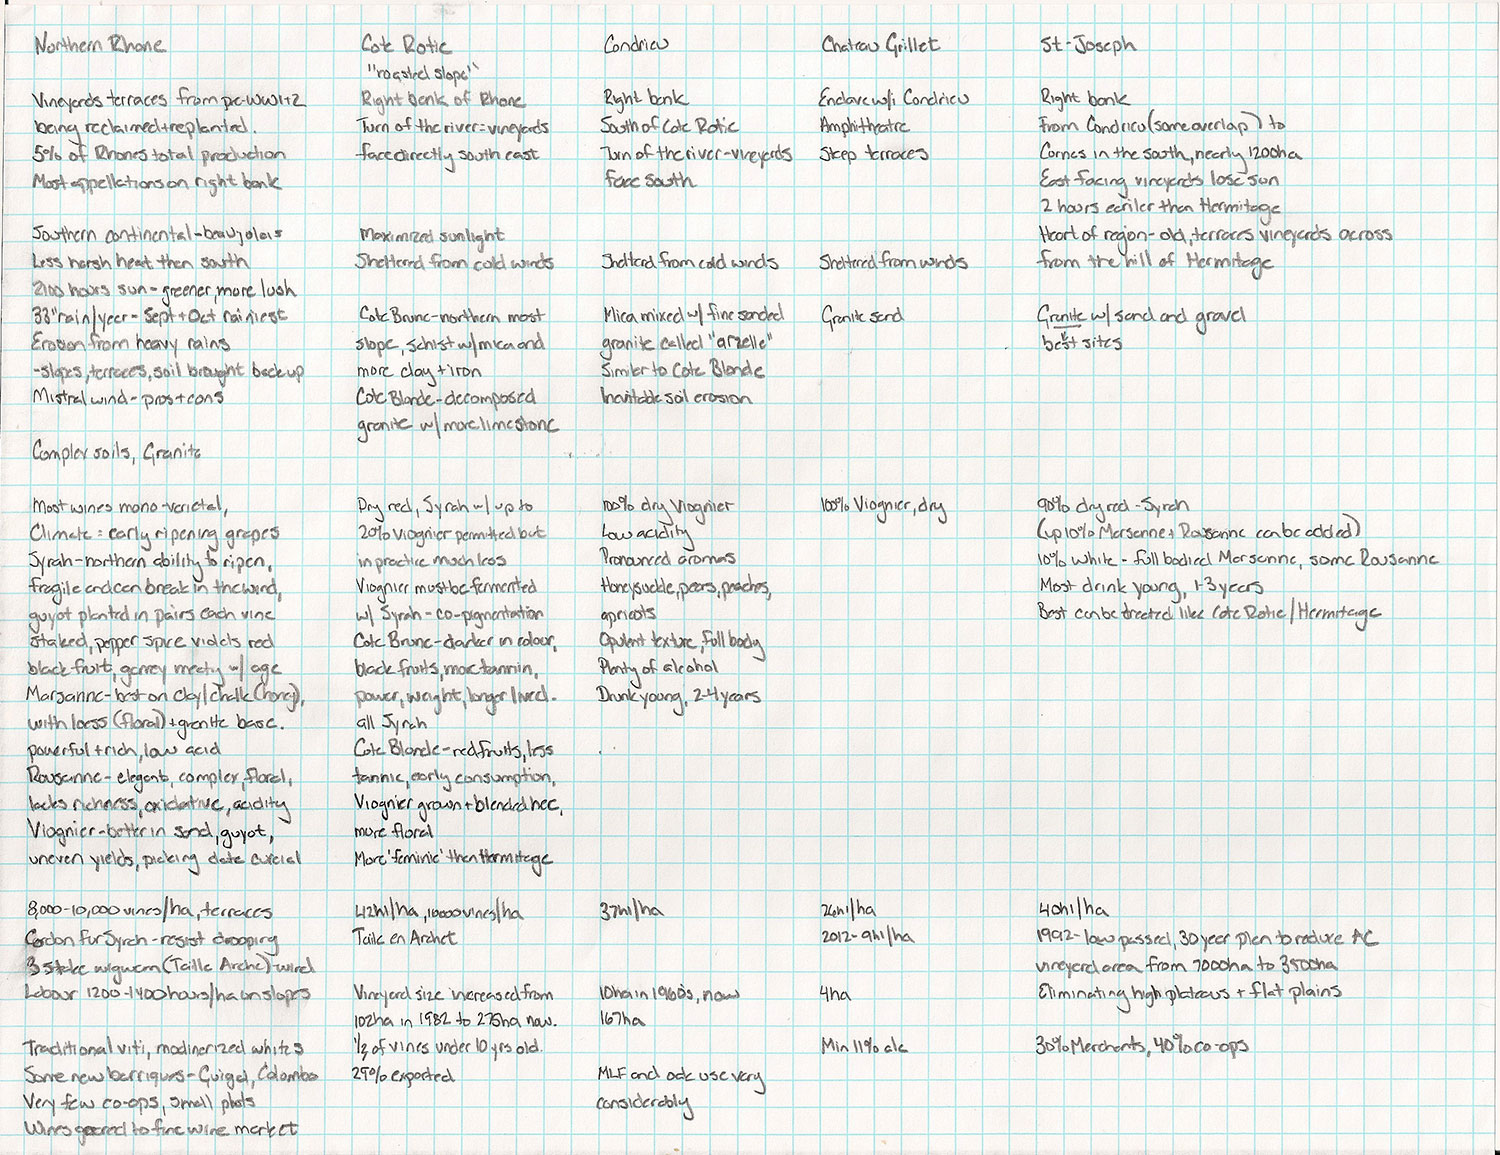 Northern Rhone
Vineyards terraces from pre-WW1+2
being reclaimed+replanted.
5% of Rhones total production
Most appellations on right bank
Southern continental-beaujolais
Less harsh heat then south
2100 hours sun - greener, more lush
33" rain/year - Sept+Oct rainiest
Erosion from heavy rains
-slopes, terraces, soil brought back up
Mistral wind - pros+cons
Complex soils, Granite
Most wines mono-varietal,
Climate = early ripening grapes
Syrah-northern ability to ripen,
fragile and can break in the wind,
guyot planted in pairs each vine
staked, pepper spice violets red
black fruit, gamey meaty w/ age
Marsanne-best on clay/chalk (honey),
with loess (floral)+granite base.
powerful+rich, low acid
Rousanne- elegant, complex, floral,
lacks richness, oxidative, acidity
Viognier-better in sand, guyot,
uneven yields, picking date curcial
8,000-10,000 vines/ha, terraces
Cordon for Syrah-resist drooping
3 stake wigwam (Taille Arche)-wind
Labour 1200-1400 hours/ha on slopes
Traditional viti, modinerized whites
Some new barriques- Guigal, Colombo
Very few co-ops, small plots
Wines geared to fine wine market
Cote Rotie
"roasted slope"
Right bank of Rhone
Turn of the river = vineyards
face directly south east
Maximized sunlight
Sheltered from cold winds
Cote Brune-northern most
slope, schist w/mica and
more clay + iron
Cote Blonde-decomposed
granite w/ more limestone
Dry red, Syrah w/ up to
20% Viognier permitted but
in practice much less
Viognier must be fermented
w/ Syrah - co-pigmentation
Cote Brune-darker in colour,
black fruits, more tannin,
power, weight, longer lived.
all Syrah
Cote Blonde-red fruits, less
tannic, early consumption,
Viognier grown + blended hec,
more floral
More 'feminie' then Hermitage
42hl/ha, 10000 vines/ha
Taile en Archet
Vineyard size increased from
102ha in 1982 to 275ha now.
1/2 of vines under 10 yrs old.
29% exported
Condrieu
Right bank
South of Cote Rotie
Turn of the river-vineyards
face south
Sheltered from cold winds
Mica mixed w/ fine sanded
granite called "arzelle"
Similar to Cote Blonde
Inevitable soil erosion
100% dry Viognier
Low acidity
Pronounced aromas
Honeysuckle, pears, peaches,
apricots
Opulent texture, full body
Plenty of alcohol
Drunk young, 2-4 years
37hl/ha
10ha in 1960's, now
167ha
MLF and oak use vary
considerably
Chateau Grillet
Enclave w/i Condrieu
Amphitheatre
Steep terraces
Sheltered from winds
Granite sand
100% Viognier, dry
26hl/ha
2012-9hl/ha
4ha
Min 11% alc
St-Joseph
Right bank
From Condrieu (some overlap) to
Cornes in the south, nearly 1200ha
East facing vineyards lose sun
2 hours earlier than Hermitage
Heart of region-old, terraces vineyards across
from the hill of Hermitage
Granite w/ sand and gravel
best sites
90% dry red -Syrah
(up 10% Marsanne + Rousanne can be added)
10% White - full bodied Marsanne, some Rousanne
Most drink young, 1-3 years
Best can be treated like Cote Rotie/Hermitage
40hl/ha
1992-law passed, 30 year plan to reduce AC
vineyard area from 7000ha to 3500ha
Eliminating high plateaus + flat plains
30% Merchants, 40% co-ops